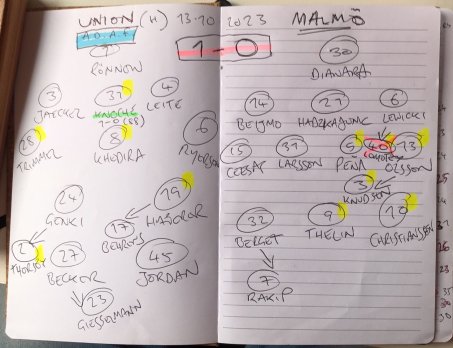 UNION (H) 13·10 2023 MALMÖ
A.O.A.F
1-0
1
RÖNNOW
30
DIAWARA
3
JAECKEL
31
KNOCHE
1-0 (88)
4
LEITE
28
TRIMMEL
8
KHEDIRA
6
RYERSON
24
GENKI
19
HABERER
17
BEHRENS
2
THORSBY
27
BECKER
45
JORDAN
23
GIESSELMANN
14
BEIJMO
21
6
LEWICKI
15
CEESAY
31
LARSSON
5
PEÑA
40
13
OLSSON
3
KNUDSON
32
BERGET
9
THELIN
10
CHRISTIANSEN
7
RAKIP